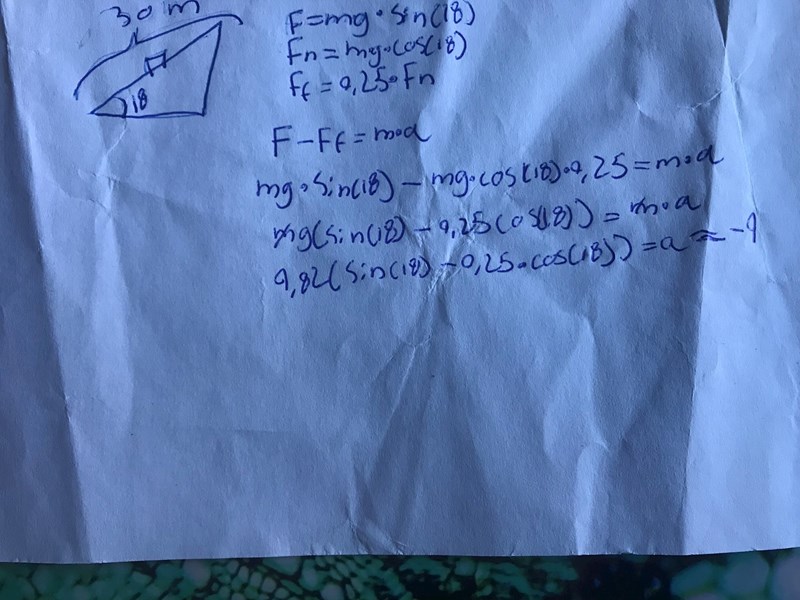 30 m
18
F=mg·sin(18)
Fn=mg·cos(18)
Ff=0,25·Fn
F-Ff=m·a
mg·sin(18)-mg·cos(18)·0,25=m·a
mg(sin(18)-0,25(cos(18))=m·a
9,82(sin(18)-0,25·cos(18))=a≈-9